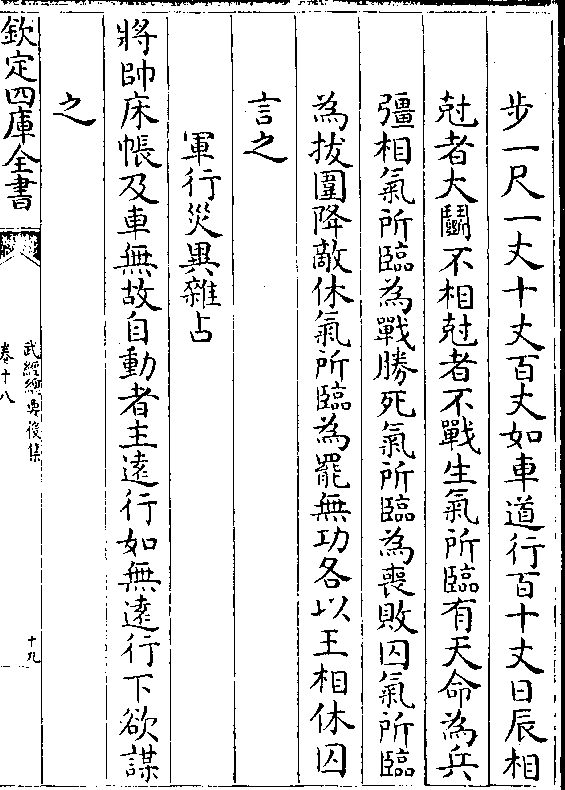 步一尺一丈十丈百丈如車道行百十丈日辰相
尅者大鬭不相尅者不戰生氣所臨有天命為兵
彊相氣所臨為戰勝死氣所臨為喪敗囚氣所臨
為拔圍降敵休氣所臨為罷無功各以王相休囚
言之
軍行災異雜占
將帥床帳及車無故自動者主逺行如無逺行下欲謀
之
欽定四庫全書
武經總要後集
卷十八
十九